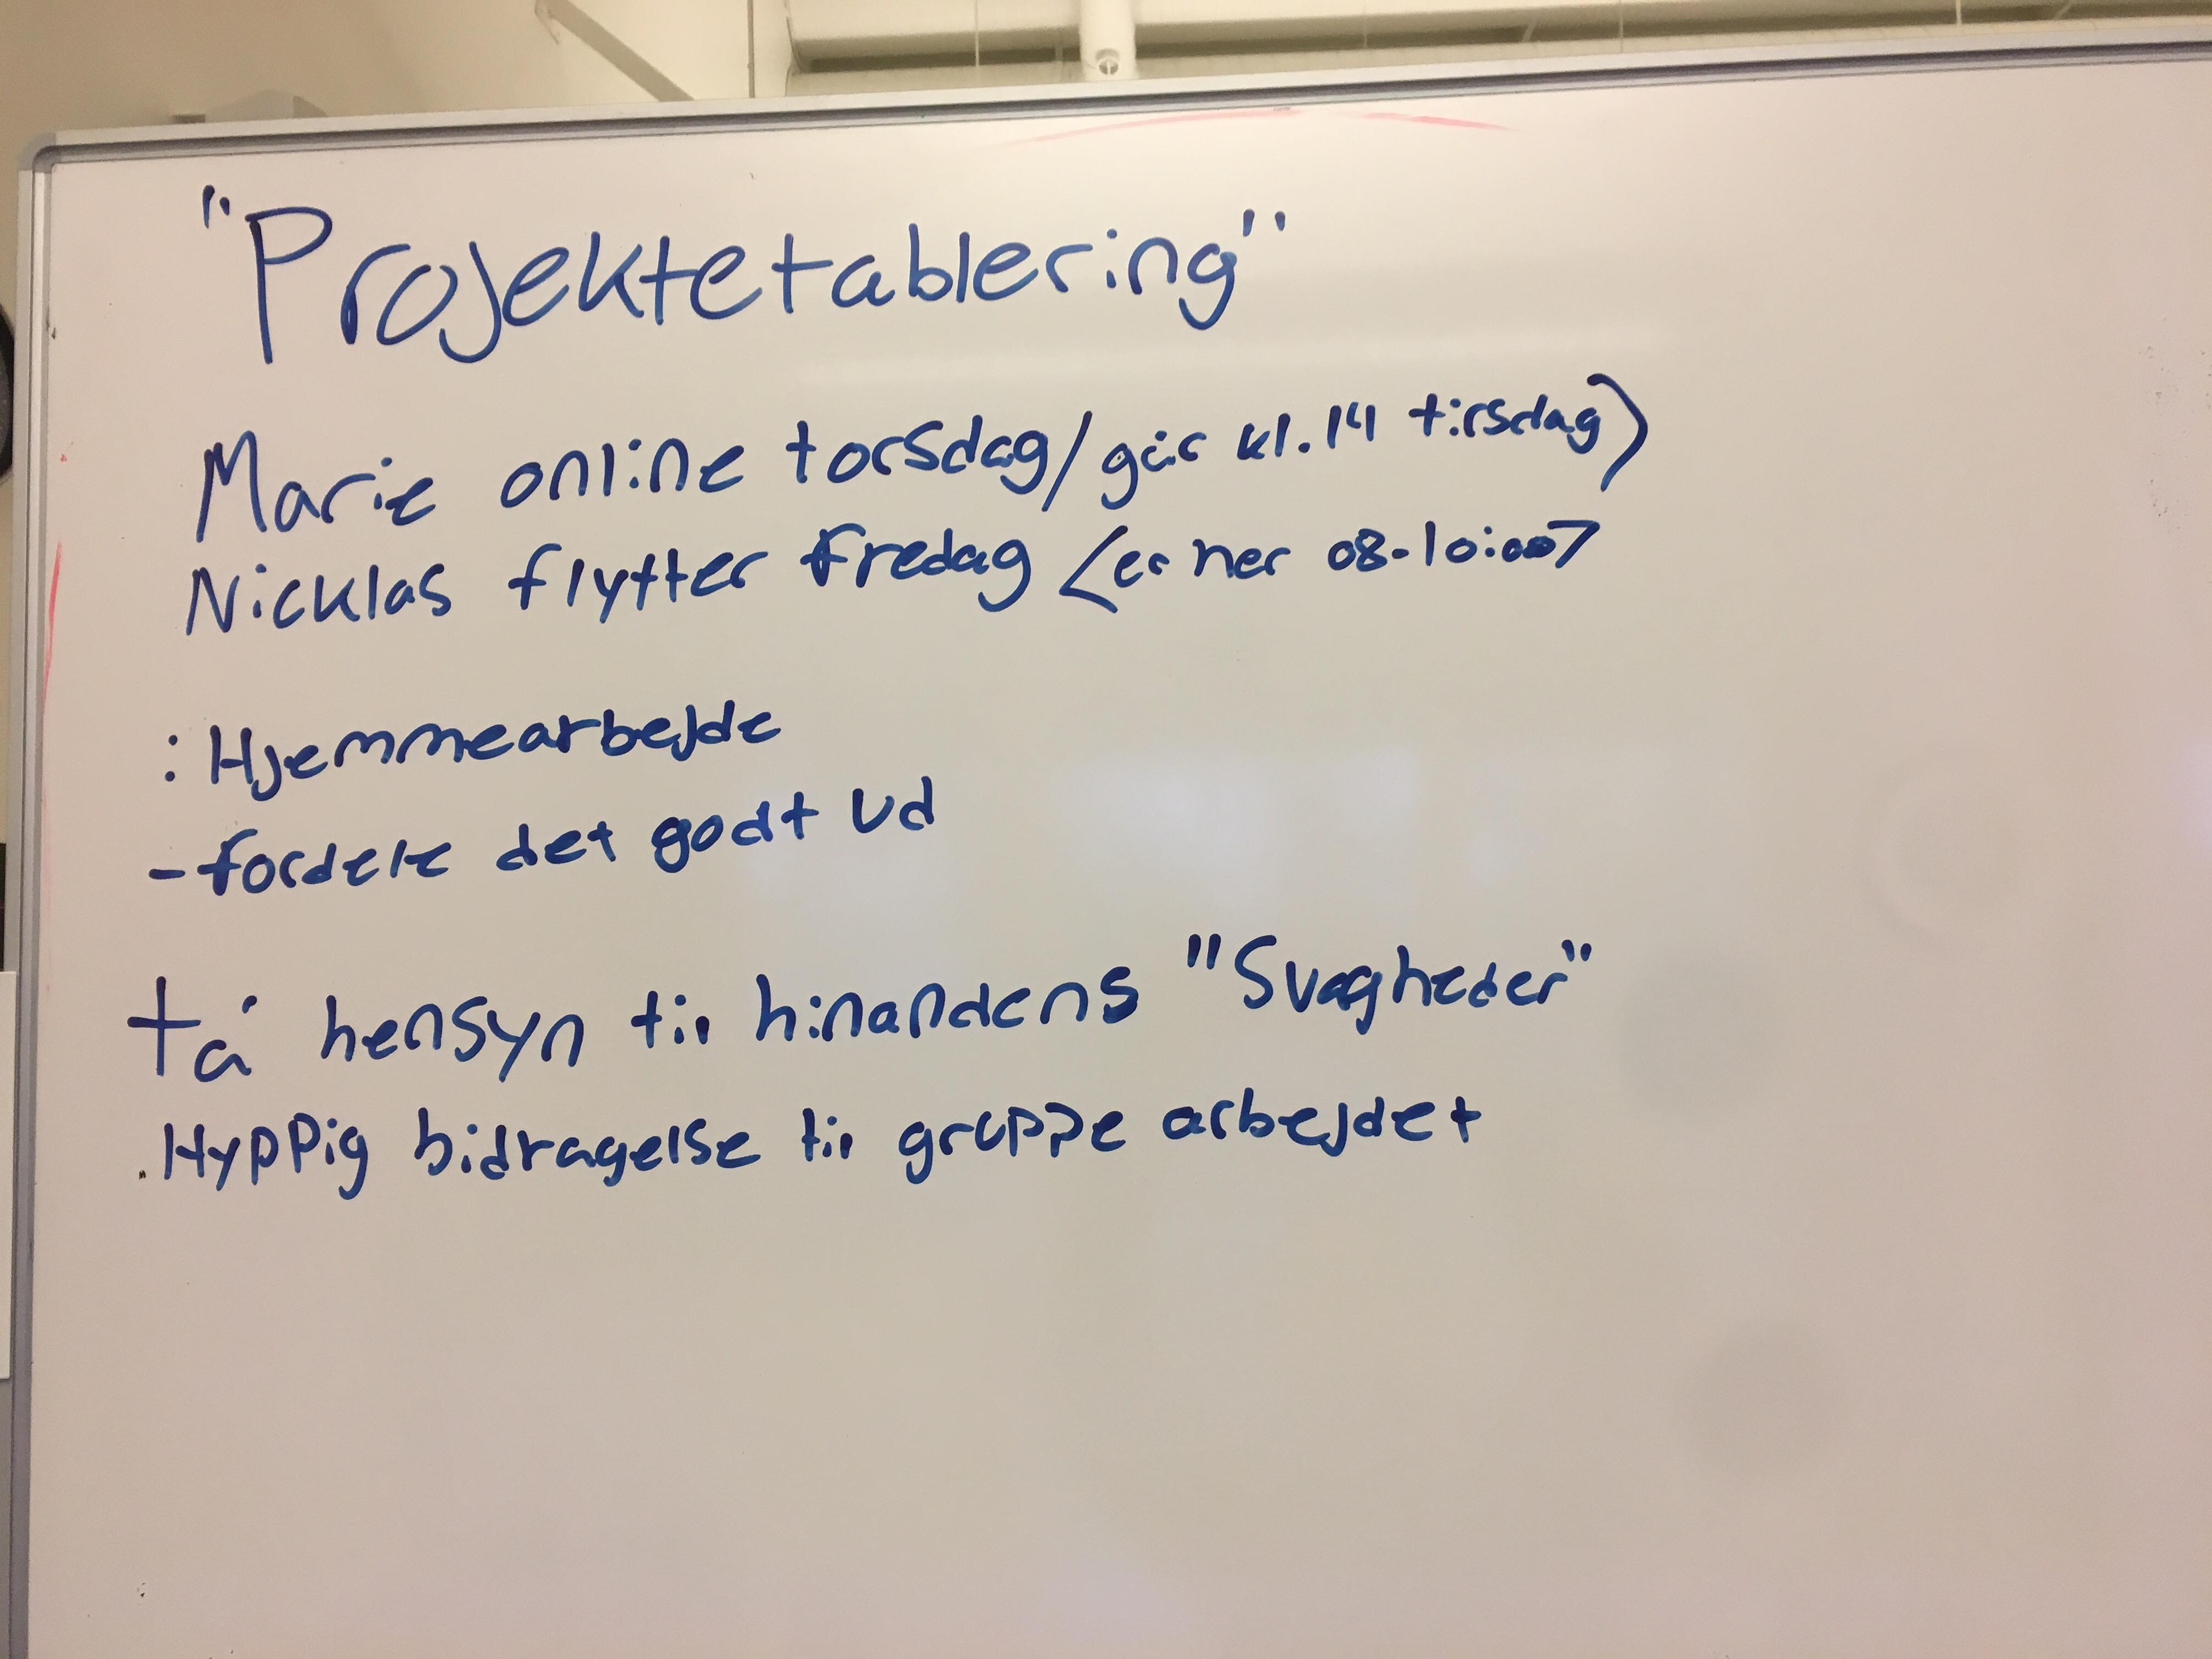 "Projektetablering"
Marie online torsdag/går kl.14 tirsdag)
Nicklas flytter fredag (er her 08-10:00)
: Hjemmearbejde
- fordele det godt ud
ta' hensyn til hinandens "Svagheder"
. Hyppig bidragelse til gruppe arbejdet